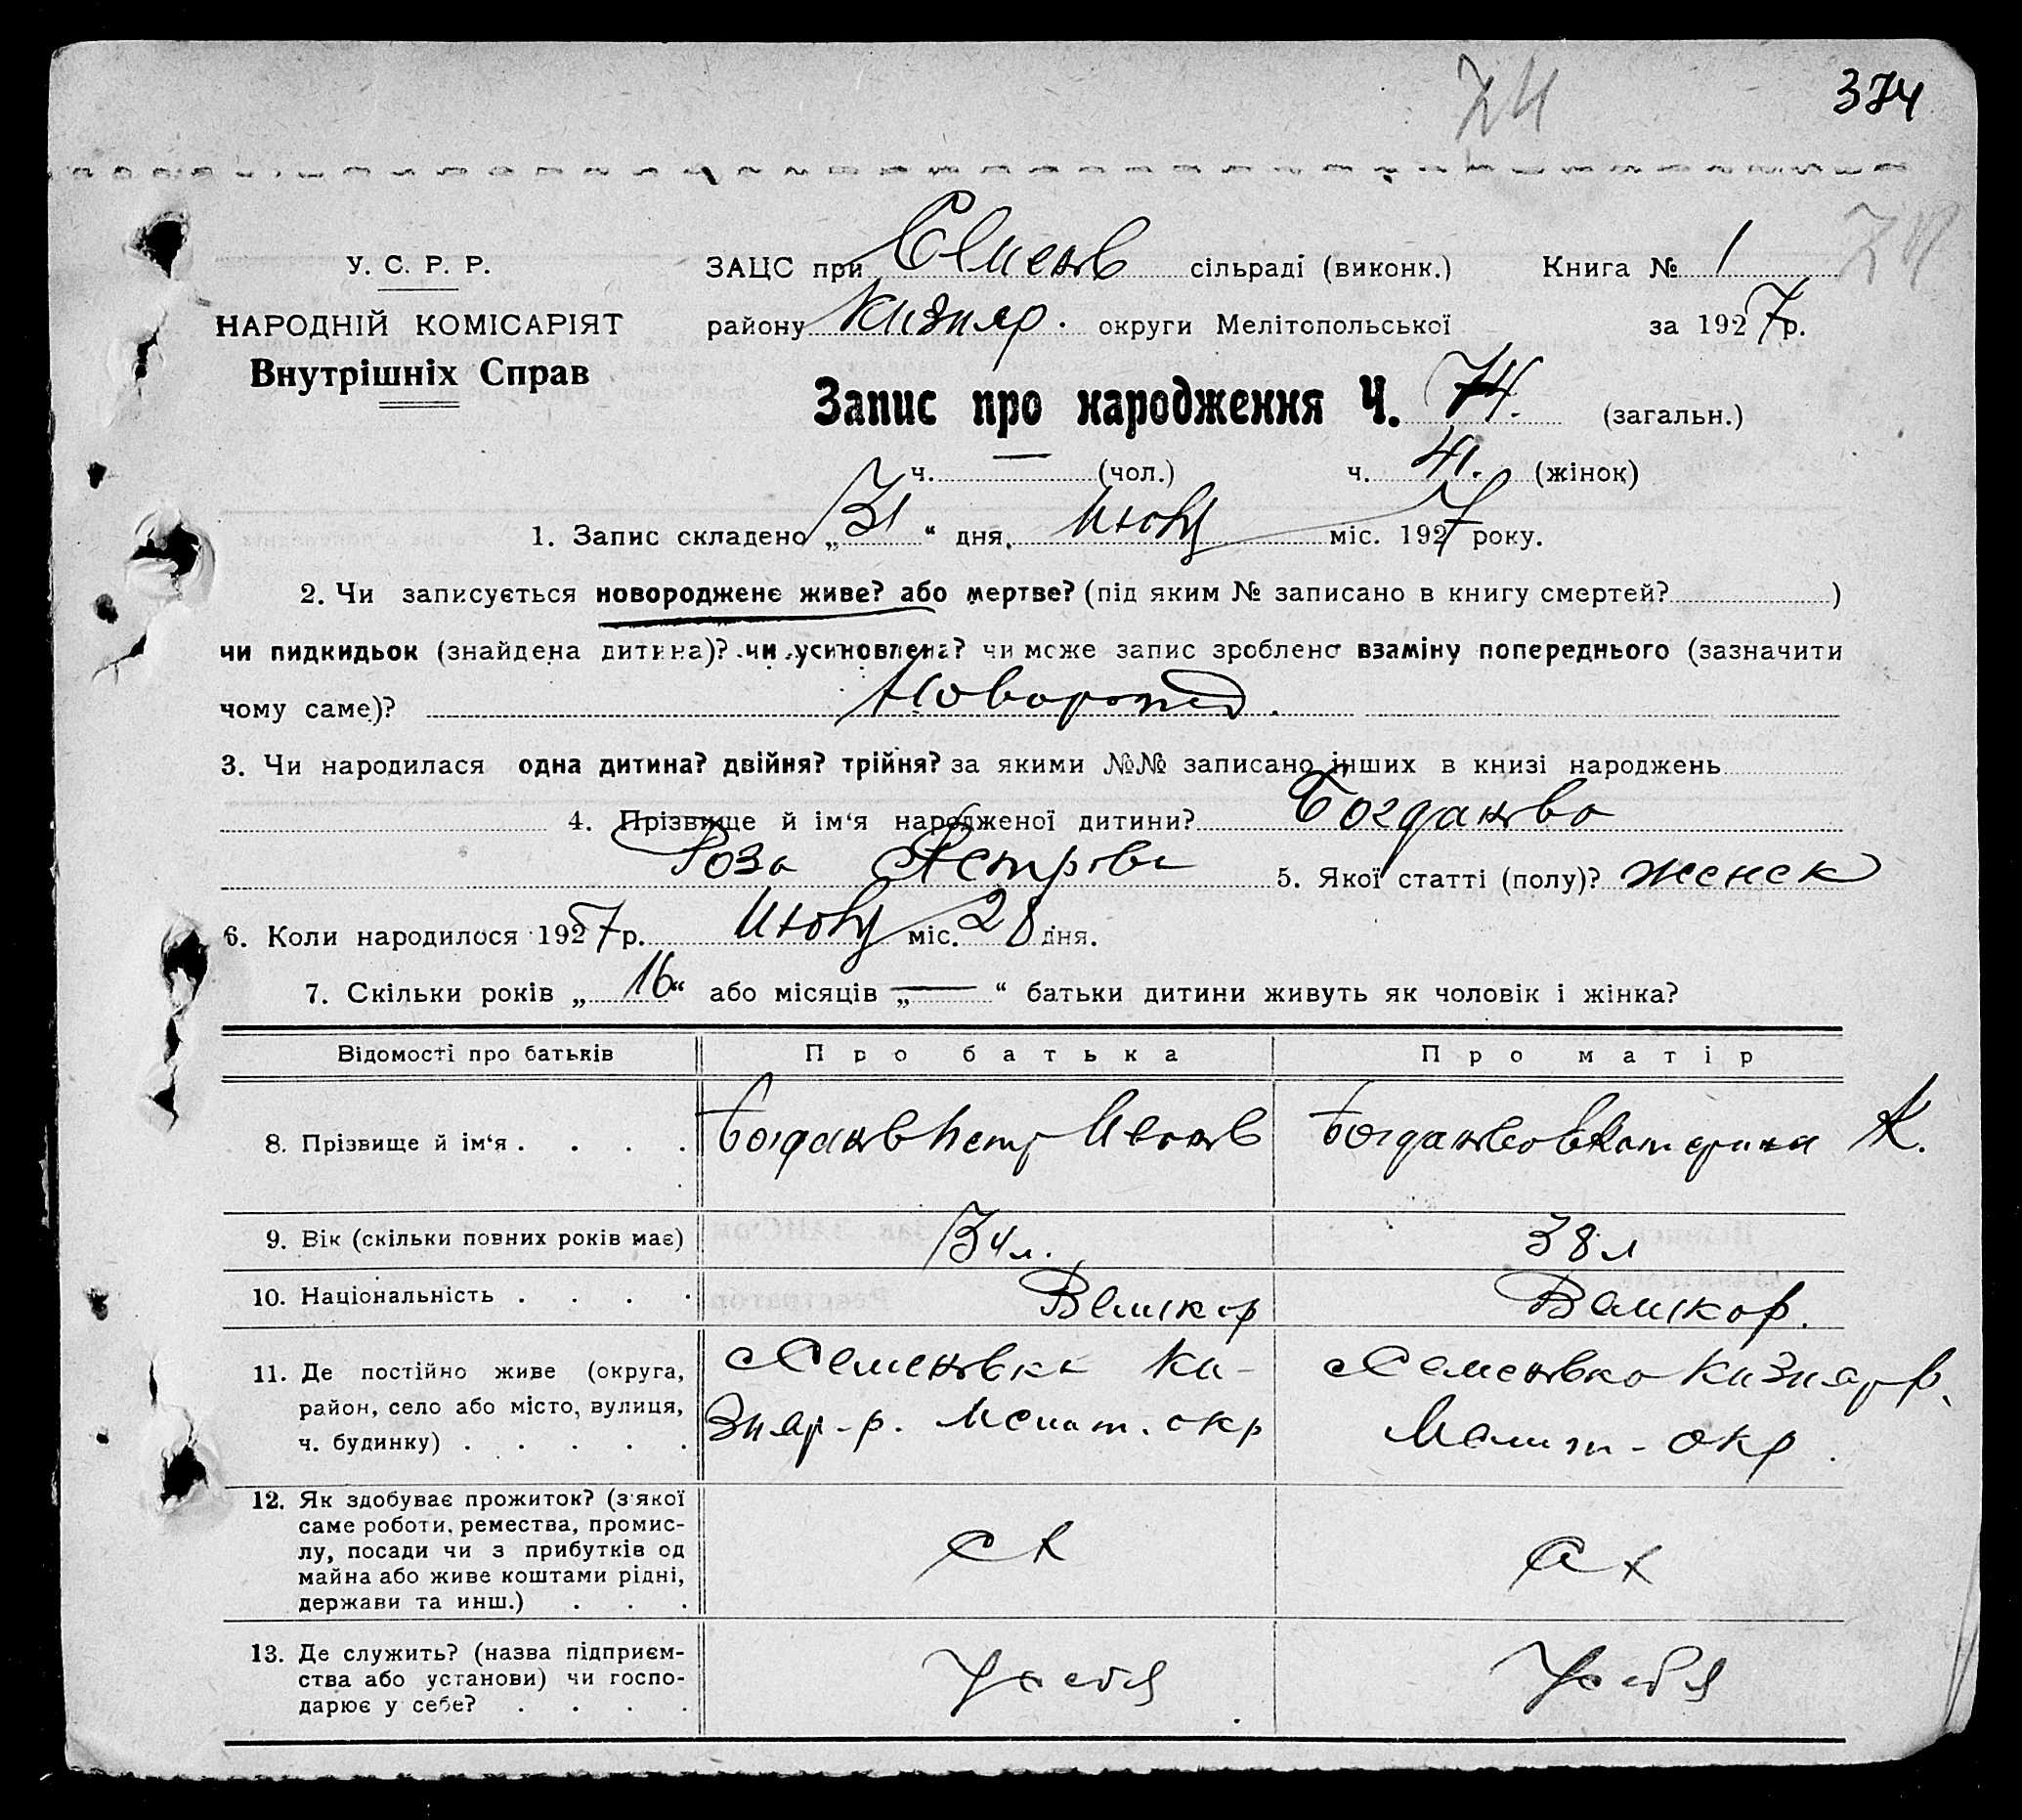 374
74
74
У. С. Р. Р.
НАРОДНІЙ КОМІСАРІЯТ
Внутрішніх Справ
ЗАЦС при Семенов сільраді (виконк.) Книга № 1
району Кизияр. округи Мелітопольської за 1927 р.
Запис про народження Ч. 74. (загальн.)
ч. (чол.) ч. 41. (жінок)
1. Запис складено „31“ дня Июля міс. 1927 року.
2. Чи записується новороджене живе? або мертве? (під яким № записано в книгу смертей? )
чи пидкидьок (знайдена дитина)? чи усиновлена? чи може запис зроблено взаміну попереднього (зазначити
чому саме)? Наворожд.
3. Чи народилася одна дитина? двійня? трійня? за якими №№ записано інших в книзі народжень
4. Прізвище й ім‘я народженої дитини? Богданова
Роза Петрова 5. Якої статті (полу)? женск
6. Коли народилося 1927 р. Июля міс. 28 дня.
7. Скільки років „16“ або місяців „—“ батьки дитини живуть як чоловік і жінка?
Відомості про батьків Про батька Про матір
8. Прізвище й ім‘я . . . . Богданов Петр Иванов Богданова Екатерина К.
9. Вік (скільки повних років має) 34 л. 38 л
10. Національність . . . .
11. Де постійно живе (округа,
район, село або місто, вулиця,
ч. будинку) . . . . .
Семеновка Ки-
зияр-р. Мелит. окр
Семеновка Кизияр р.
Мелит - окр.
12. Як здобуває прожиток? (з якої
саме роботи, ремества, промис-
лу, посади чи з прибутків од
майна або живе коштами рідні,
держави та инш.) . . .
СХ
СХ
13. Де служить? (назва підприєм-
ства або установи) чи госпо-
дарює у себе? . . . .
У себя
У себя